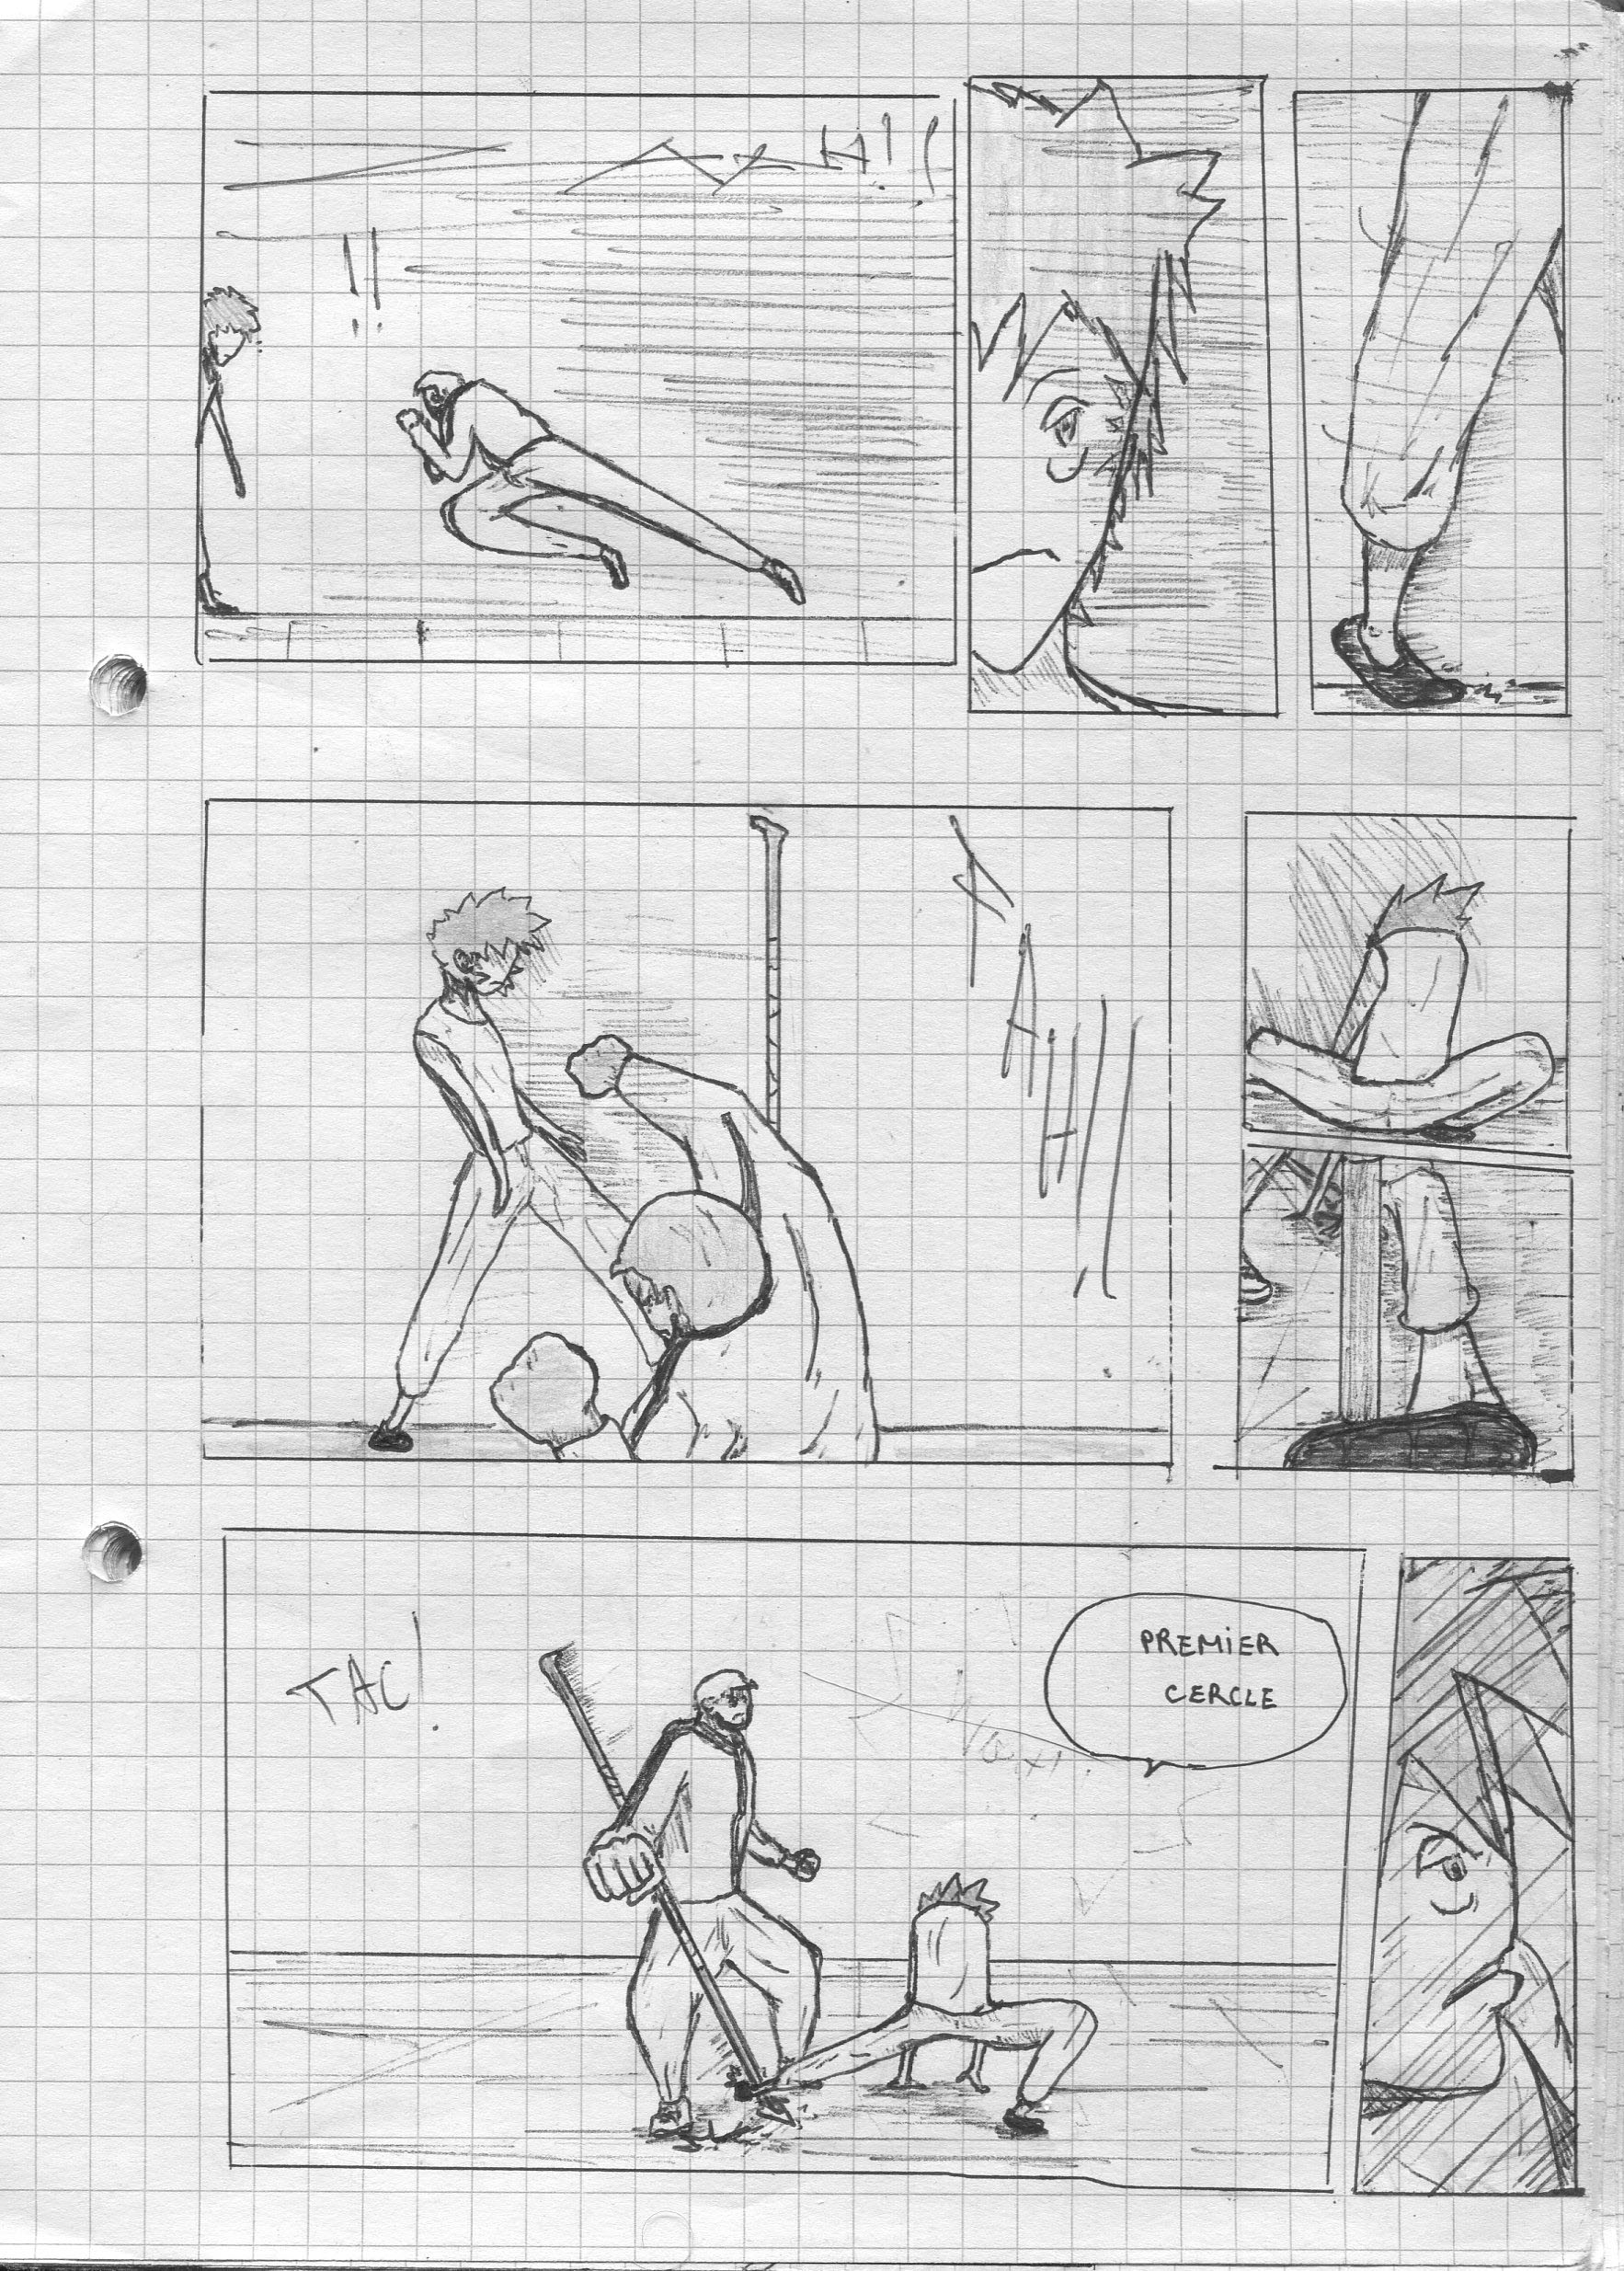 AAAH!!
!!
AAAH!!
TAC!
PREMiER
CERCLE